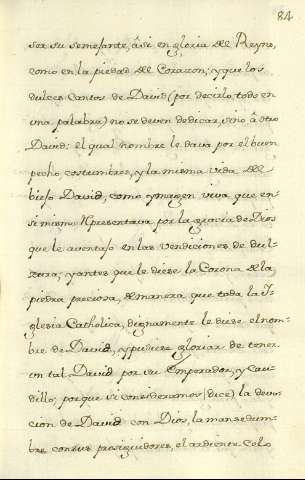 84
ser su semejante, âsi en gloria del Reyno,
como en la piedad del Corazon; y que los
dulces Cantos de David (por decirlo todo en
una palabra) no se deven dedicar, sino â otro
David: el qual nombre le dava por el buen
pecho costumbres, y la misma vida del
biejo David, como ymagen viva que en
si mismo representava por la gracia de Dios
que le aventajo en las vendiciones de dul-
zura, y antes que le diese la Corona de la
piedra preciosa, de manera que toda la I-
glesia Catholica, dignamente le diese el nom-
bre de David, y pudiese gloriar de tener
en tal David por su Emperador, y Cau-
dillo, porque si consideramos (dice) la devo-
cion de David con Dios, la mansedum-
bre con sus prosiguidores, el ardiente Celo